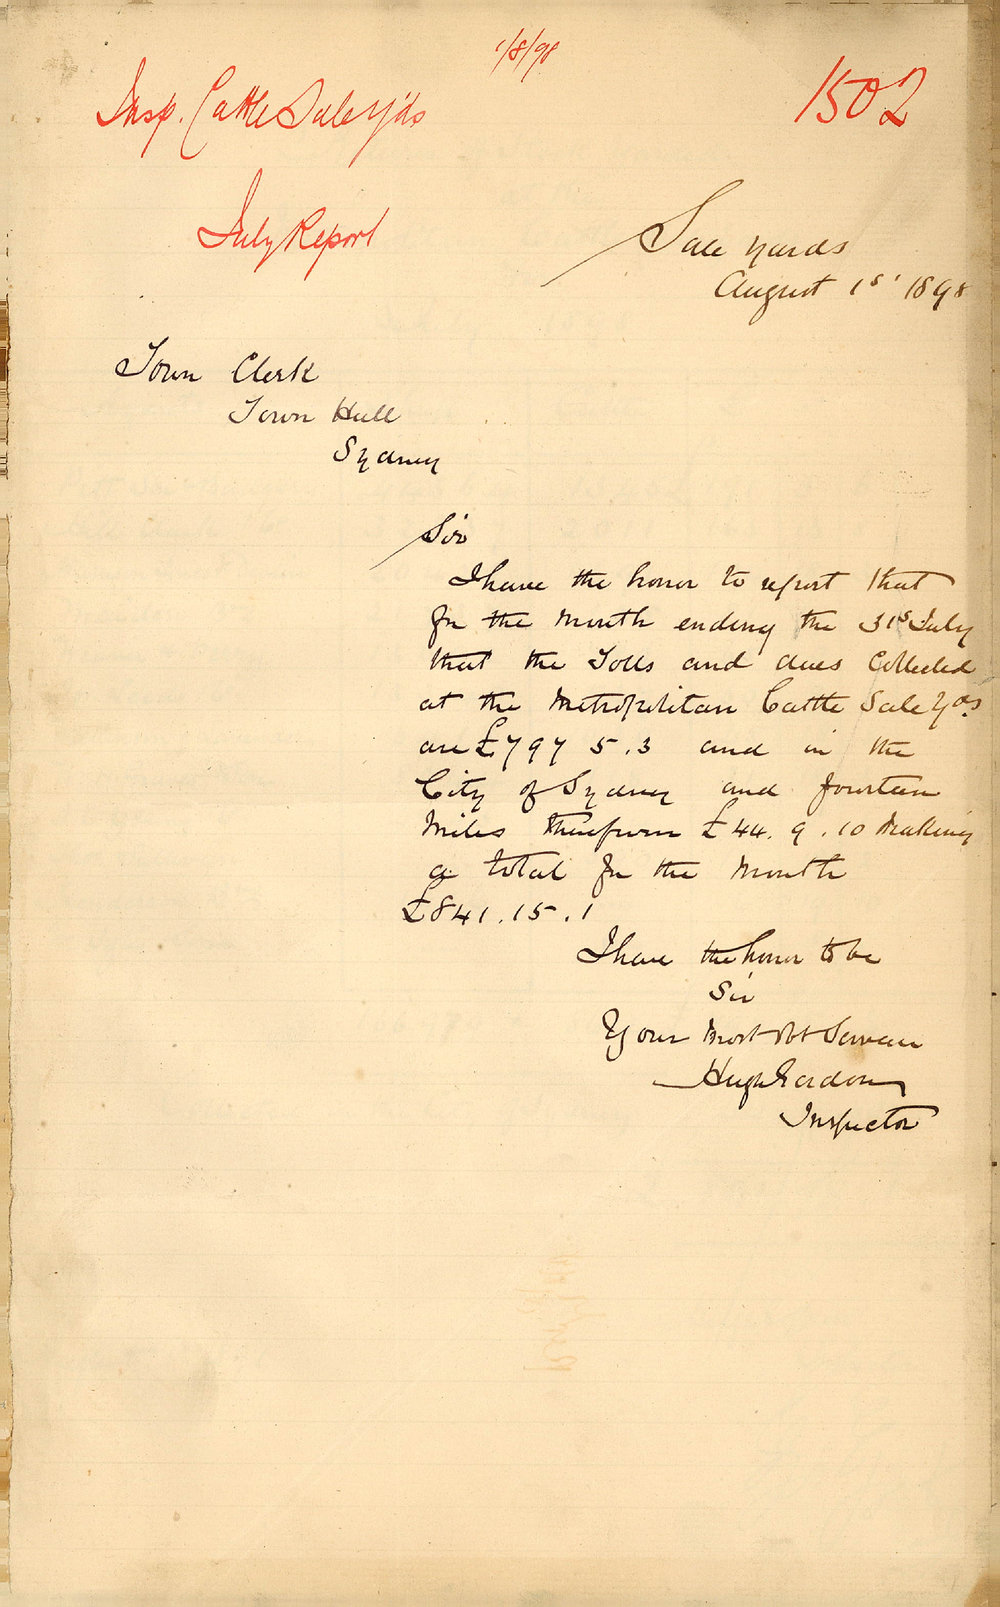 1/8/98
1502
Insp. Cattle Sale Yds
July Report
Sale yards
August 1st 1898
Town Clerk
Town Hall
Sydney
Sir
I have the honor to report that
for the Month ending the 31st July
that the Tolls and dues Collected
at the Metropolitan Cattle Sale Yds
are £797 5.3 and in the
City of Sydney and fourteen
Miles therefrom £44.9.10 Making
a total for the Month
£841.15.1
I have the honor to be
Sir
Your Most Obt Servan
Hugh Gordon
Inspector